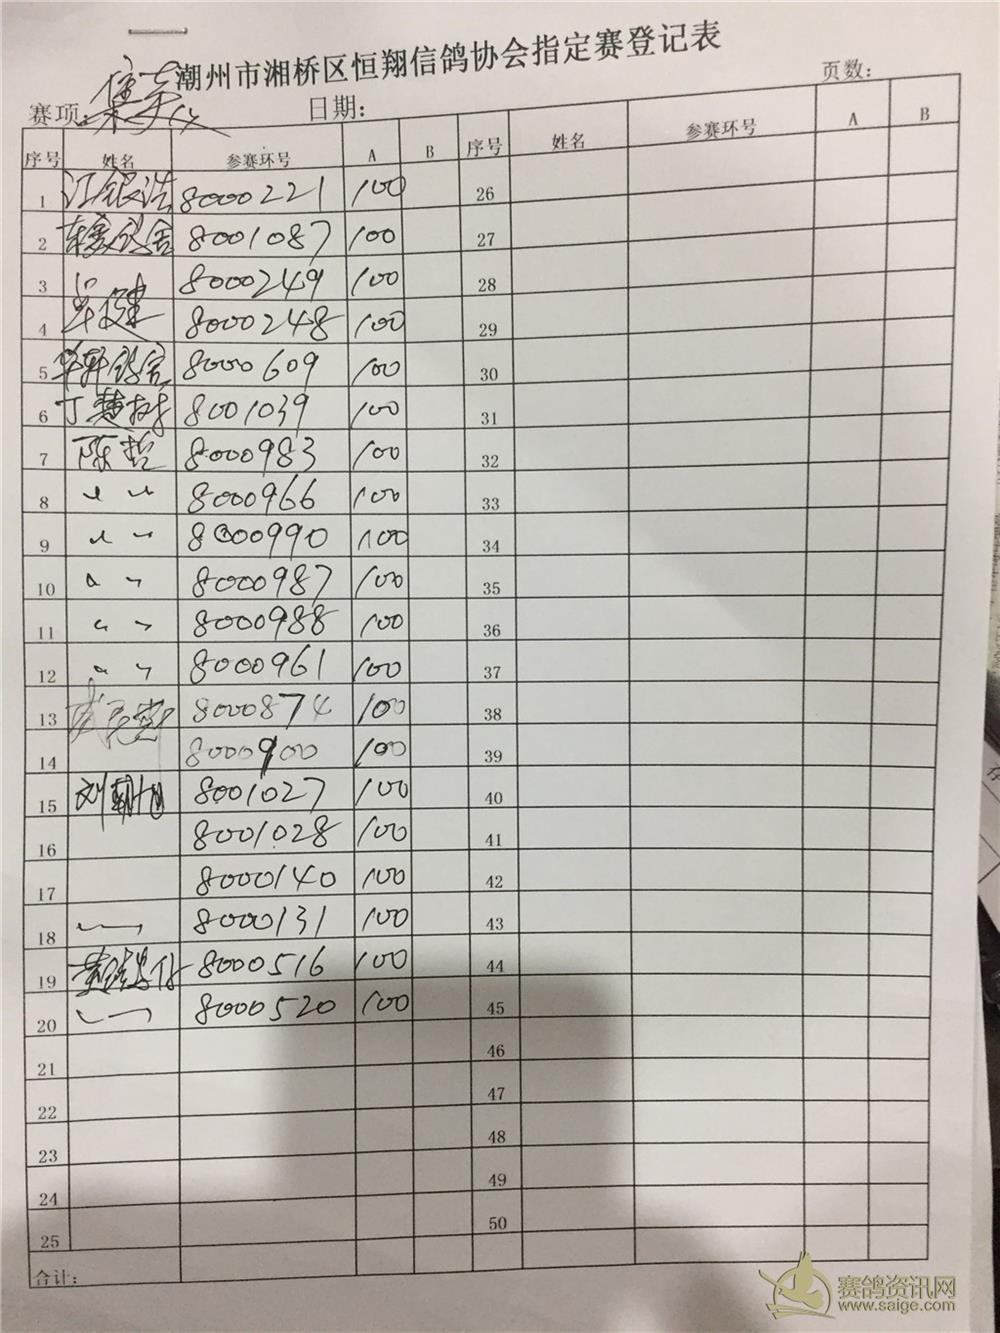 潮州市湘桥区恒翔信鸽协会指定赛登记表
赛项: 日期: 页数:
序号 姓名 参赛环号 A B 序号 姓名 参赛环号 A B
1 江银浩 8000221 100 26
2 8001087 100 27
3 8000249 100 28
4 8000248 100 29
5 华轩鸽舍 8000609 100 30
6 丁楚材 8001039 100 31
7 陈哲 8000983 100 32
8 〃 〃 8000966 100 33
9 〃 〃 8000990 100 34
10 〃 〃 8000987 100 35
11 〃 〃 8000988 100 36
12 〃 〃 8000961 100 37
13 8000874 100 38
14 8000900 100 39
15 刘朝旭 8001027 100 40
16 8001028 100 41
17 8000140 100 42
18 8000131 100 43
19 8000516 100 44
20 8000520 100 45
21 46
22 47
23 48
24 49
25 50
合计:
赛鸽资讯网
www.saige.com